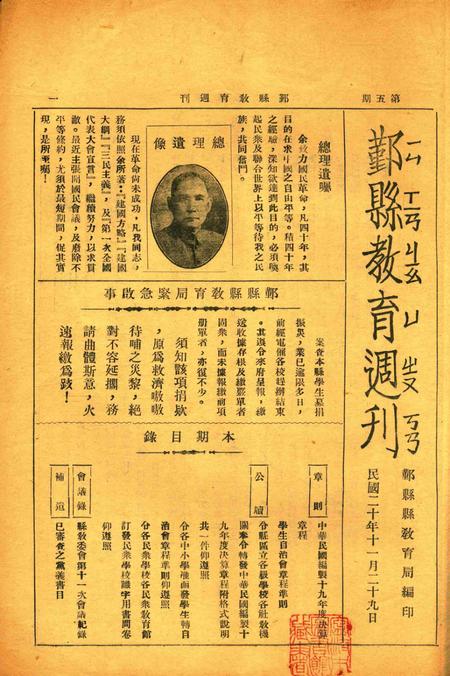 第五期
鄞縣教育週刊
一
鄞縣教育週刊
ㄒㄧㄢ ㄐㄧㄠ ㄩ ㄓㄡ ㄎㄢ
鄞縣縣教育局編印
民國二十年十一月二十九日
總理遺囑
余致力國民革命，凡四十年，其
目的在求中國之自由平等。積四十年
之經驗，深知欲達到此目的，必須喚
起民衆及聯合世界上以平等待我之民
族，共同奮鬥。
總理遺像
現在革命尚未成功，凡我同志，
務須依照余所著：『建國方略』『建國
大綱』『三民主義』，及『第一次全國
代表大會宣言』，繼續努力，以求貫
澈。最近主張開國民會議，及廢除不
平等條約，尤須於最短期間，促其實
現，是所至囑！
鄞縣縣教育局緊急啟事
案查本縣學生募捐
振災，業已逾限多日，
前經電催各校趕辦結束
。其遵令來府呈報，繳
送收據存根及繳款單者
固衆，而未據報繳前項
冊單者，亦復不少。
須知該項捐欵
，原爲救濟嗷嗷
待哺之災黎，絕
對不容延擱，務
請曲體斯意，火
速報繳爲跂！
本期目錄
章則
中華民國編製十九年度決算
章程
學生自治會章程準則
公牘
分縣區立各級學校各社教機
關奉令轉發中華民國編製十
九年度決算章程附格式說明
共一件仰遵照
分各中小學抽函發學生轉自
治會章程準則仰遵照
分各民衆學校各民衆教育館
訂發民衆學校識字用書問卷
仰遵照
會議錄
縣教委會第十一次會議紀錄
補遺
已審查之黨義書目